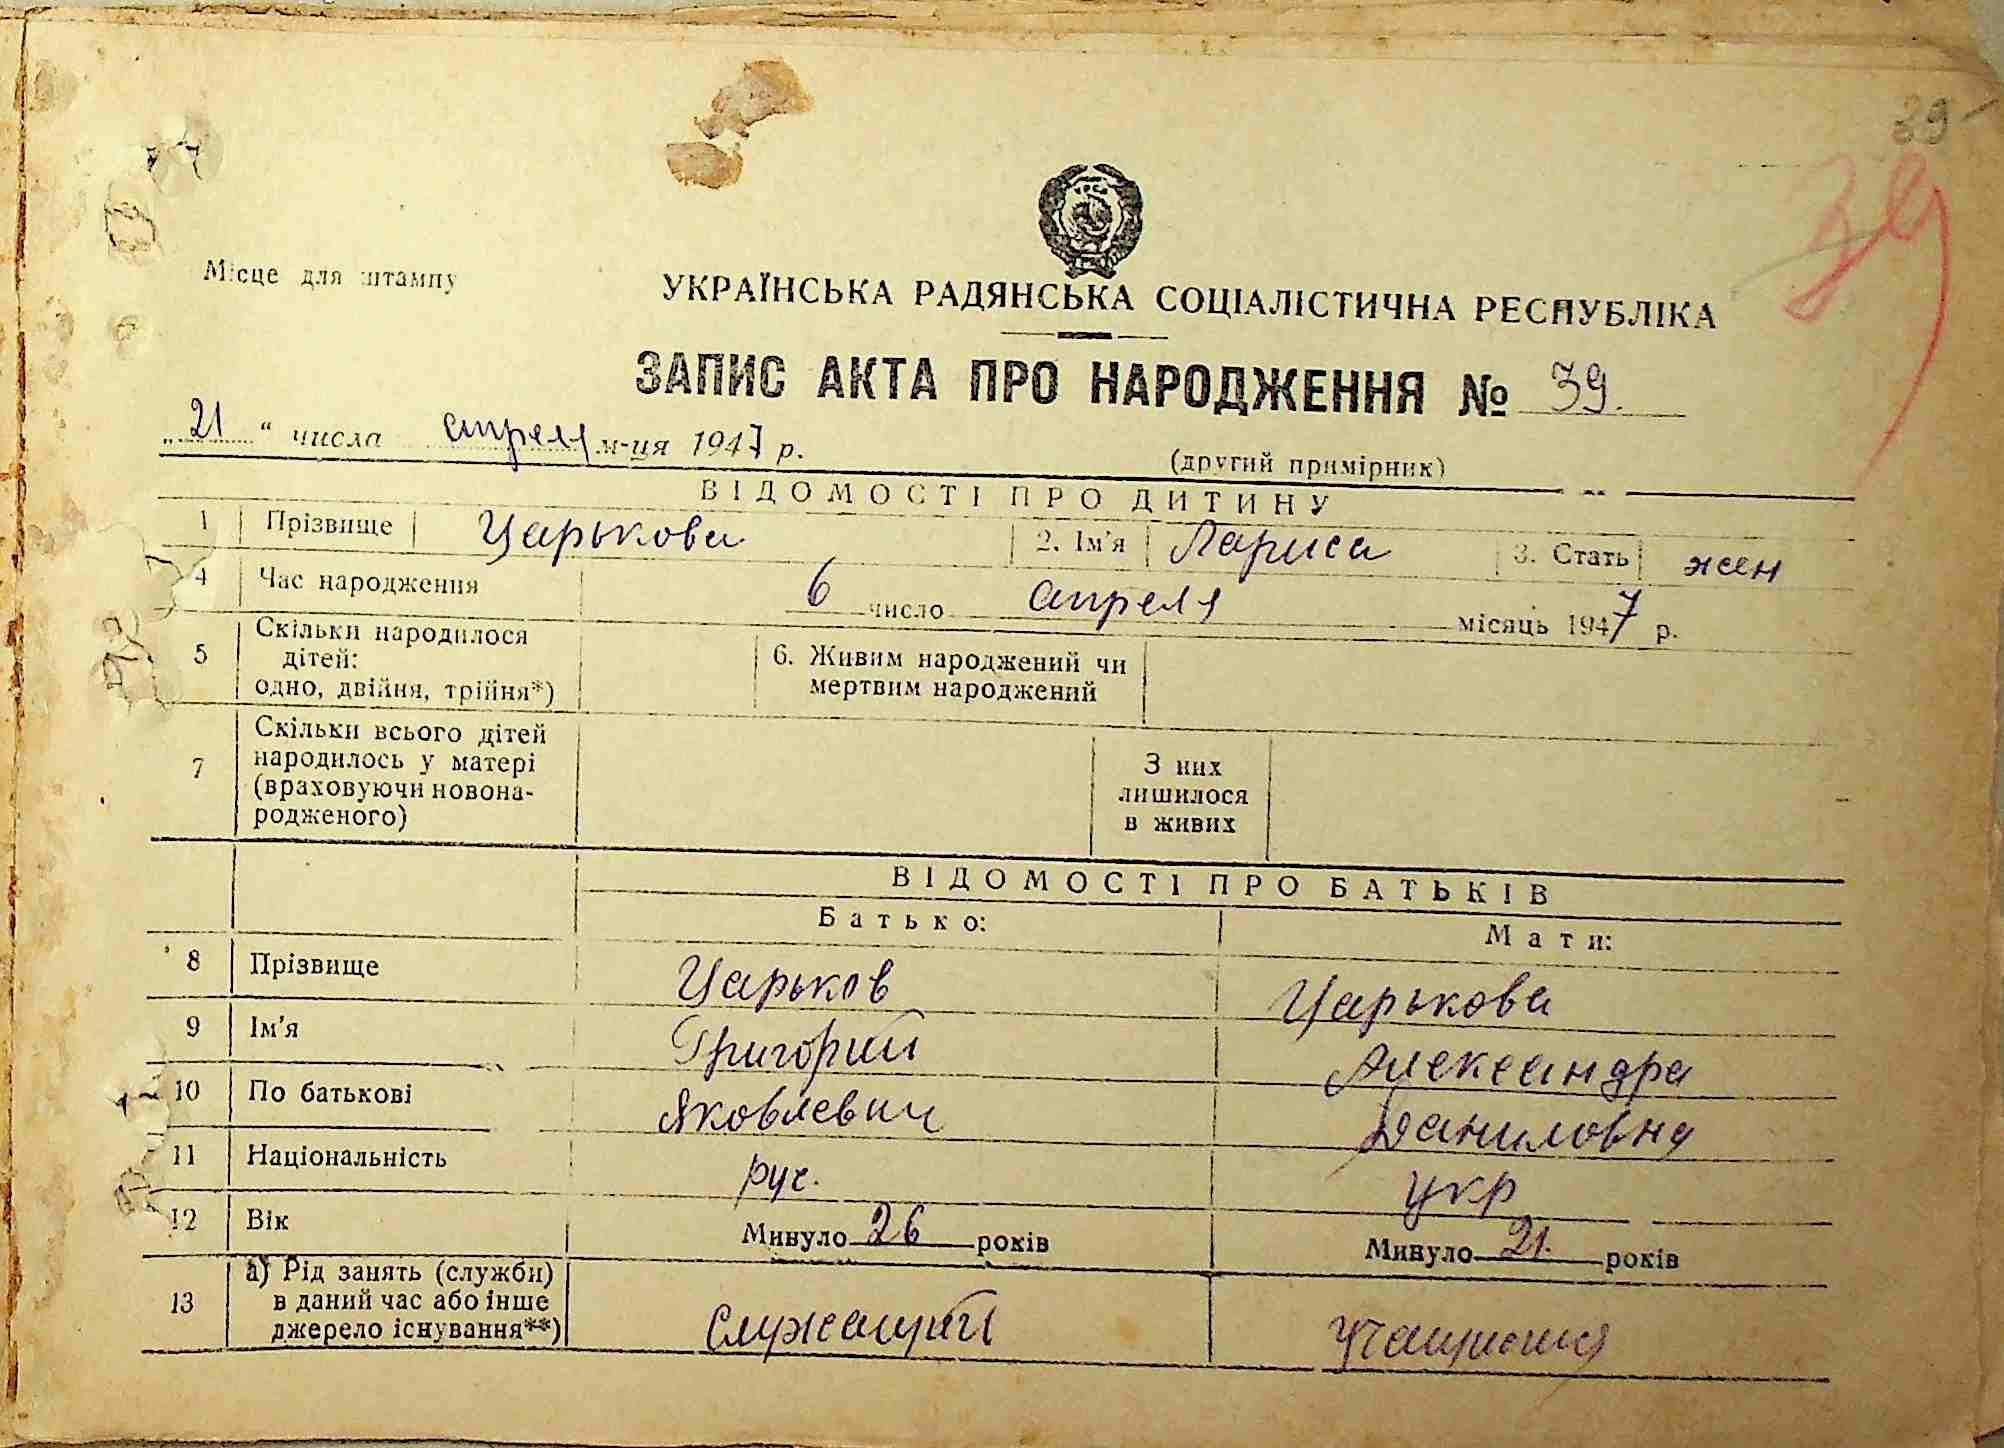 39
39
Місце для штампу
УРСР
УКРАЇНСЬКА РАДЯНСЬКА СОЦІАЛІСТИЧНА РЕСПУБЛІКА
ЗАПИС АКТА ПРО НАРОДЖЕННЯ № 39.
„21“ числа апреля м-ця 1947 р.
(другий примірник)
ВІДОМОСТІ ПРО ДИТИНУ
1 Прізвище Царькова 2. Ім'я Лариса 3. Стать жен
4 Час народження 6 число апреля місяць 1947 р.
5 Скільки народилося дітей: одно, двійня, трійня*) 6. Живим народжений чи мертвим народжений
7 Скільки всього дітей народилось у матері (враховуючи новона-родженого) З них лишилося в живих
ВІДОМОСТІ ПРО БАТЬКІВ
Батько: Мати:
8 Прізвище Царьков Царькова
9 Ім'я Григорий Александра
10 По батькові Яковлевич Даниловна
11 Національність рус. укр
12 Вік Минуло 26 років Минуло 21. років
13 а) Рід занять (служби) в даний час або інше джерело існування**) Служащий Учащаяся